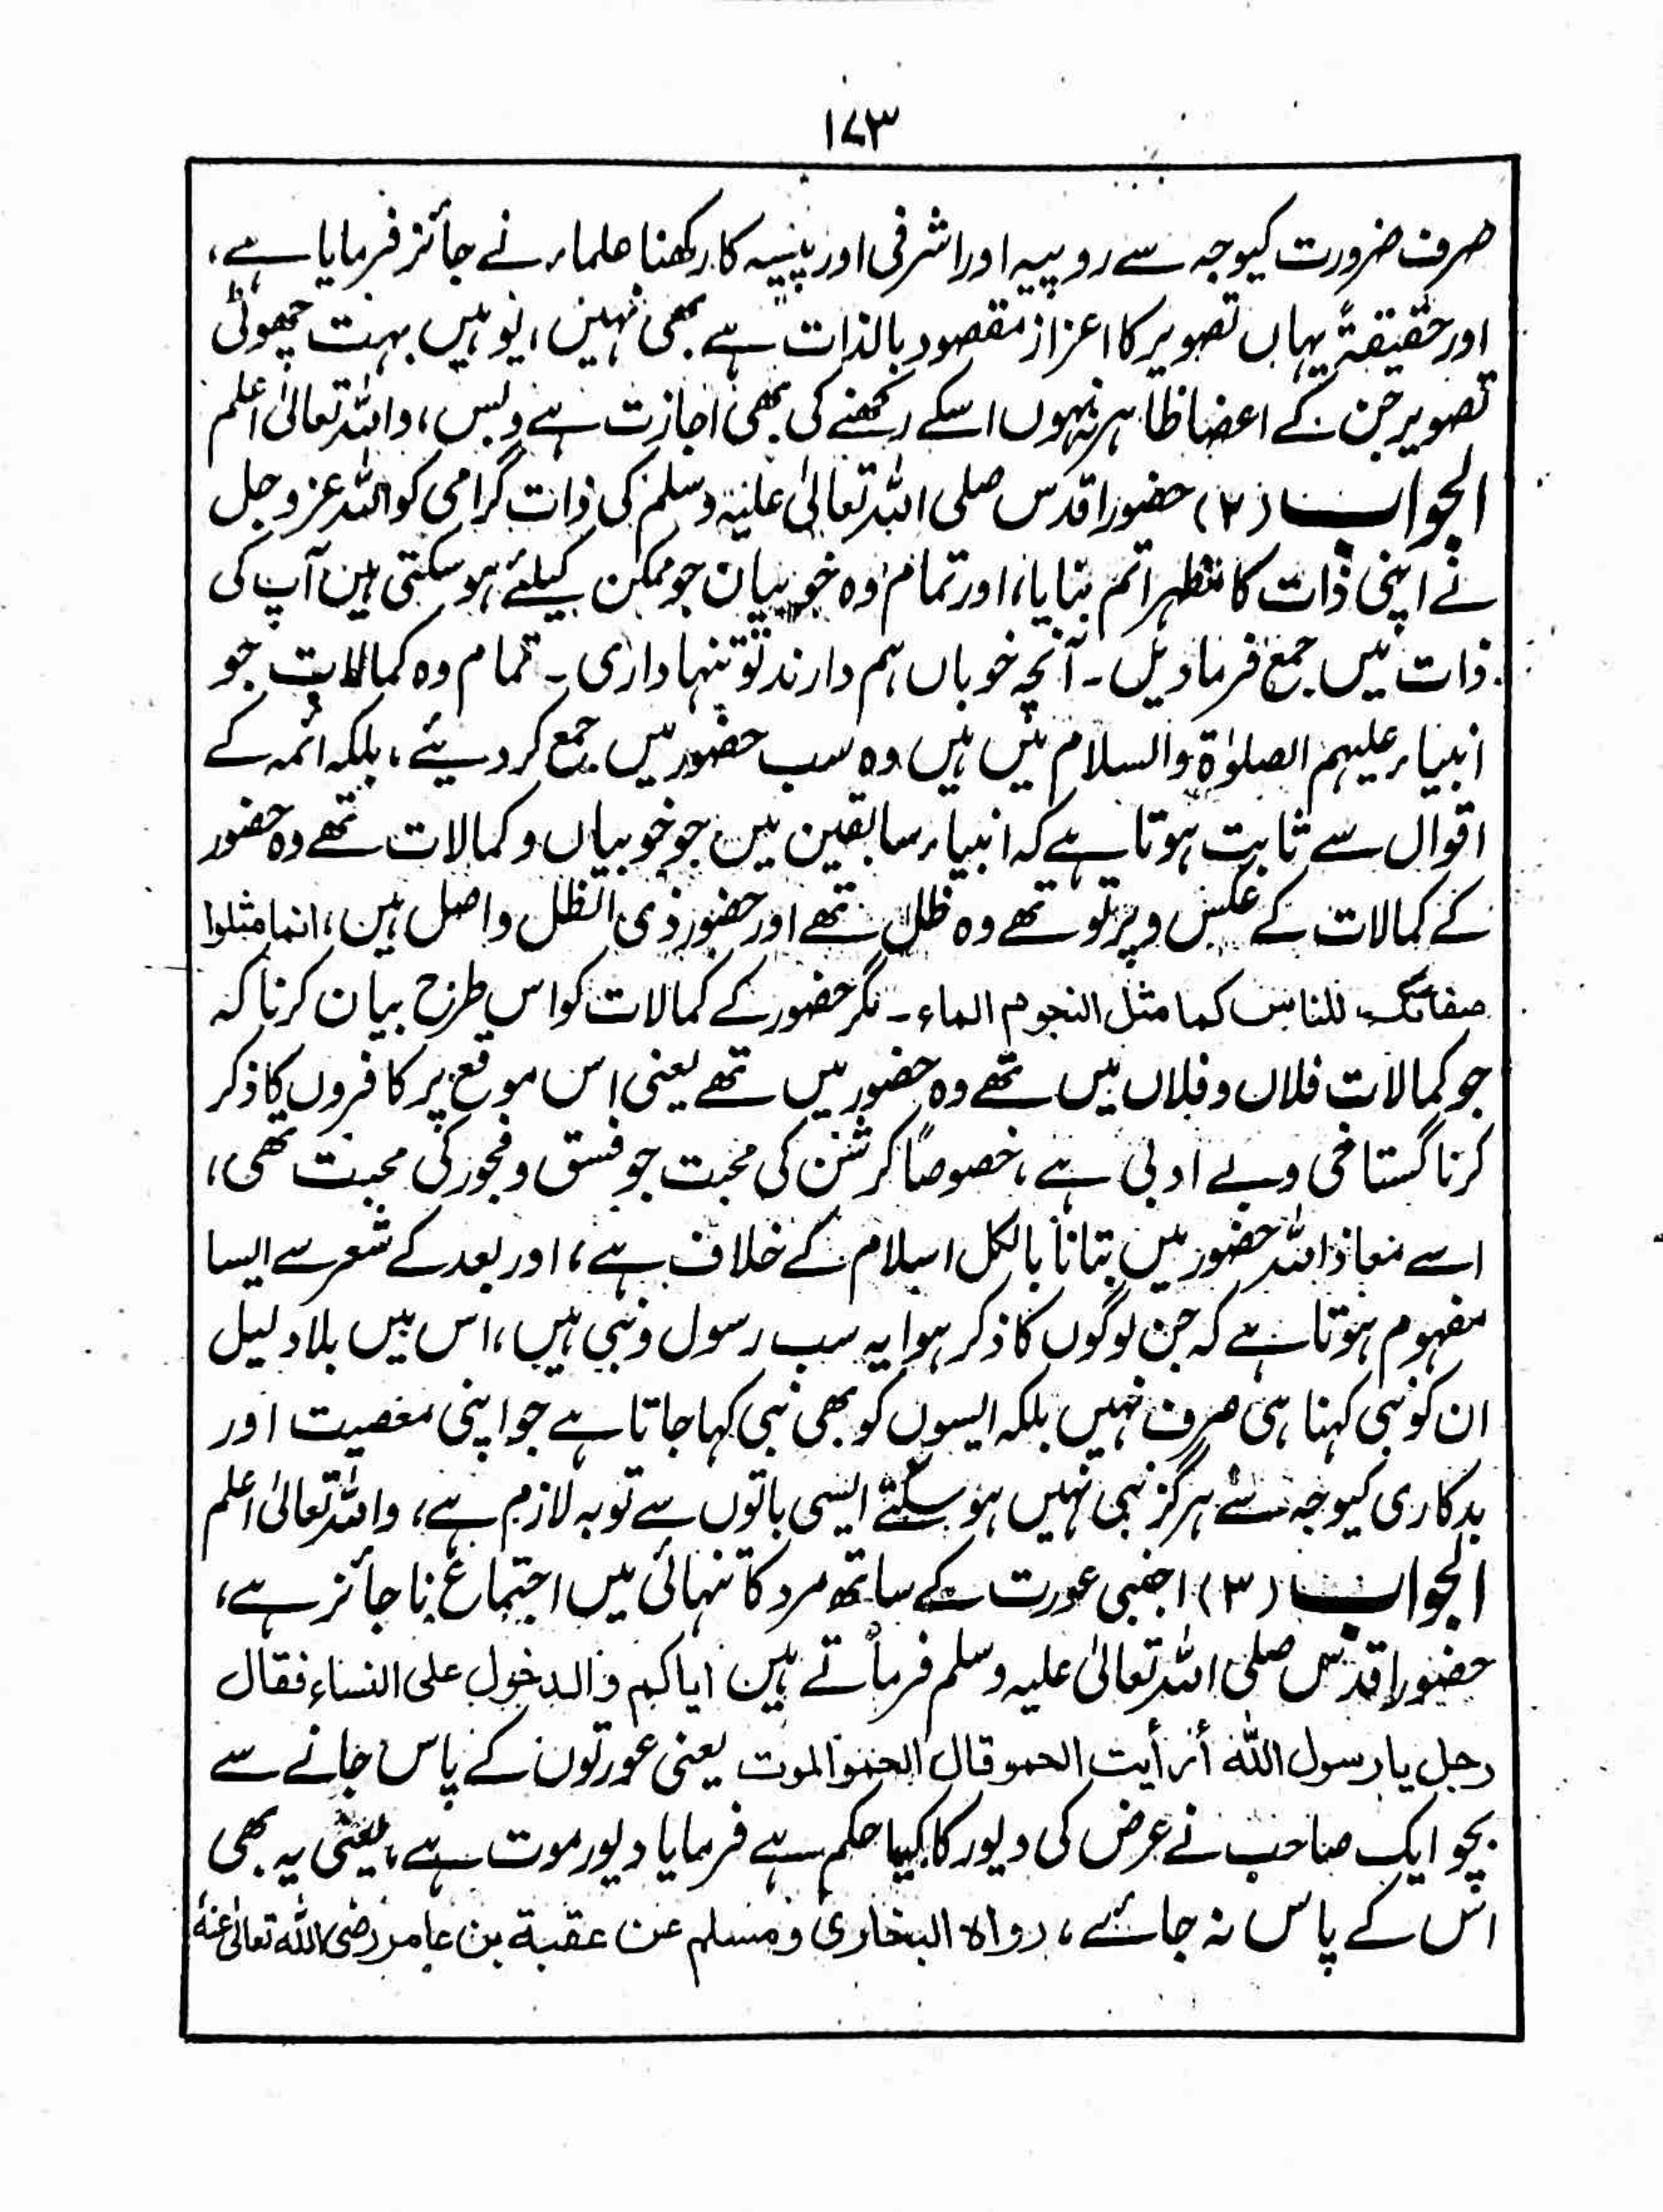 ۱۷۳
صرف ضرورت کیوجہ سے روپیہ اور اشرفی اور پیسہ کا رکھنا علماء نے جائز فرمایا ہے،
اور حقیقۃً یہاں تصویر کا اعزاز مقصود بالذات ہے بھی نہیں، یوہیں بہت چھوٹی
تصویر جن کے اعضا ظاہر نہ ہوں اسکے رکھنے کی بھی اجازت ہے وبس، واللہ تعالیٰ اعلم
الجواب (۲) حضور اقدس صلی اللہ تعالیٰ علیہ وسلم کی ذات گرامی کو اللہ عزوجل
نے اپنی ذات کا مظہر اتم بنایا، اور تمام وہ خوبیاں جو ممکن کیلئے ہو سکتی ہیں آپ کی
ذات میں جمع فرمادیں۔ آنچہ خوباں ہم دارند تو تنہا داری۔ تمام وہ کمالات جو
انبیاء علیہم الصلوٰۃ والسلام میں ہیں وہ سب حضور میں جمع کر دیئے، بلکہ ائمہ کے
اقوال سے ثابت ہوتا ہے کہ انبیاء سابقین میں جو خوبیاں و کمالات تھے وہ حضور
کے کمالات کے عکس و پرتو تھے وہ ظل تھے اور حضور ذی الظل واصل ہیں، انما مثلوا
صفاتک للناس کما مثل النجوم الماء۔ مگر حضور کے کمالات کو اس طرح بیان کرنا کہ
جو کمالات فلاں و فلاں میں تھے وہ حضور میں تھے یعنی اس موقع پر کافروں کا ذکر
کرنا گستاخی و بے ادبی ہے، خصوصاً کرشن کی محبت جو فسق و فجور کی محبت تھی،
اسے معاذ اللہ حضور میں بتانا بالکل اسلام کے خلاف ہے، اور بعد کے شعر سے ایسا
مفہوم ہوتا ہے کہ جن لوگوں کا ذکر ہوا یہ سب رسول و نبی ہیں، اس میں بلا دلیل
ان کو نبی کہنا ہی صرف نہیں بلکہ ایسوں کو بھی نبی کہا جاتا ہے جو اپنی معصیت اور
بدکاری کیوجہ سے ہرگز نبی نہیں ہو سکتے ایسی باتوں سے توبہ لازم ہے، واللہ تعالیٰ اعلم
الجواب (۳) اجنبی عورت کے ساتھ مرد کا تنہائی میں اجتماع ناجائز ہے،
حضور اقدس صلی اللہ تعالیٰ علیہ وسلم فرماتے ہیں ایاکم والدخول علی النساء فقال
رجل یا رسول اللہ أرأیت الحمو قال الحمو الموت یعنی عورتوں کے پاس جانے سے
بچو ایک صاحب نے عرض کی دیور کا کیا حکم ہے فرمایا دیور موت ہے، یعنی یہ بھی
اس کے پاس نہ جائے، رواہ البخاری ومسلم عن عقبة بن عامر رضی اللہ تعالیٰ عنہ